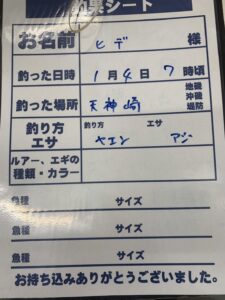 果シート
お名前 ヒデ 様
釣った日時 1月4日 7時頃
釣った場所 天神崎 地磯 沖磯 堤防
釣り方 エサ 釣り方 ヤエン エサ アジ
ルアー、エギの種類・カラー
魚種 サイズ
魚種 サイズ
魚種 サイズ
お持ち込みありがとうございました。